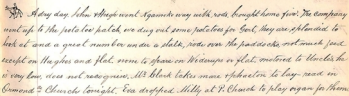 A dry day. John & Hugh went Kyeamba way with rods, brought home five. The company
went up to the potatoe patch, we dug out some potatoes for Gert, they are splendid to
look at and a great number under a stalk, rode over the paddocks, not much feed
except on Hughes and flat, none to spare on Widneys or flat, motored to Uncles, he
is very low, does not recognise. Mr Clark takes more
Ormond Church tonight. Eva dropped Milly at P. Church to play organ for them